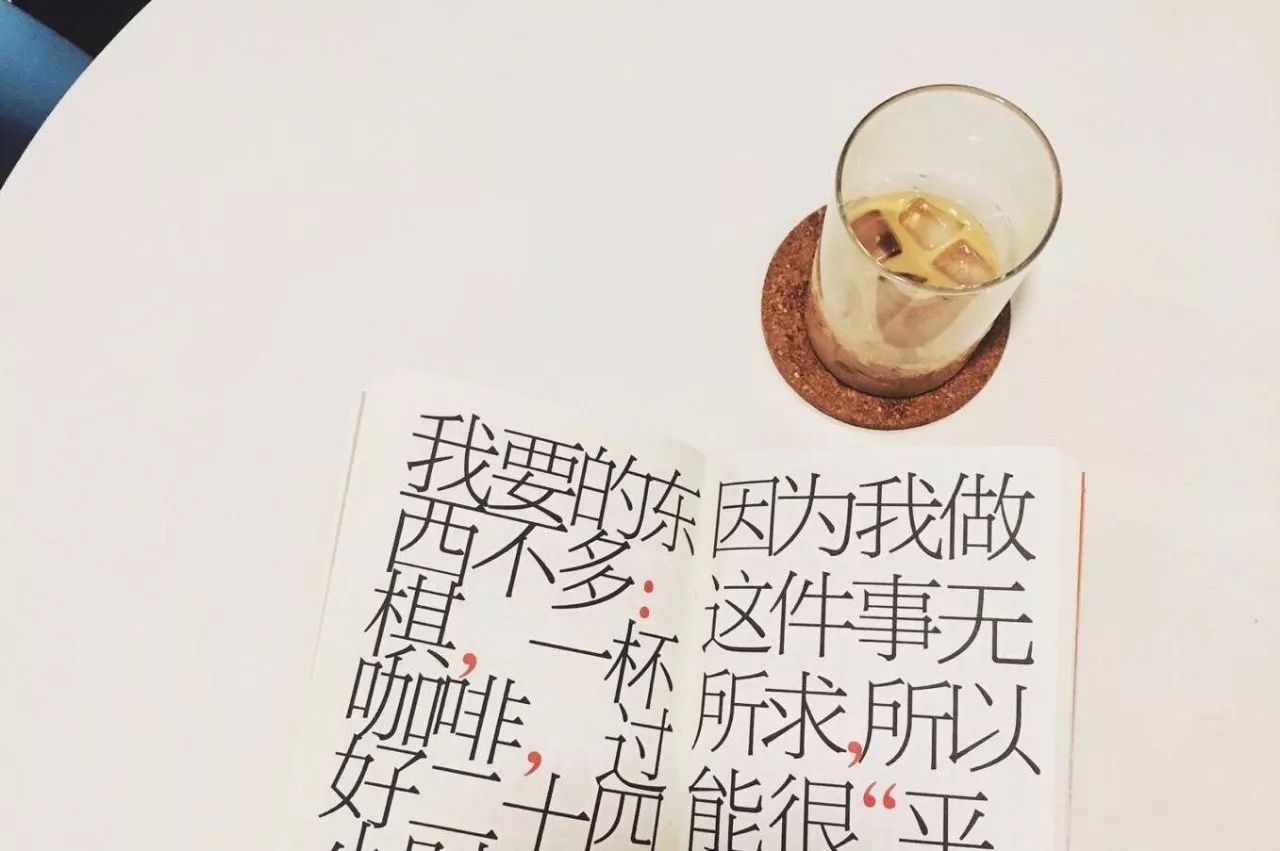 我要的东
西不多：
棋，一杯
咖啡，过
好二十四
因为我做
这件事无
所求，所以
能很“平